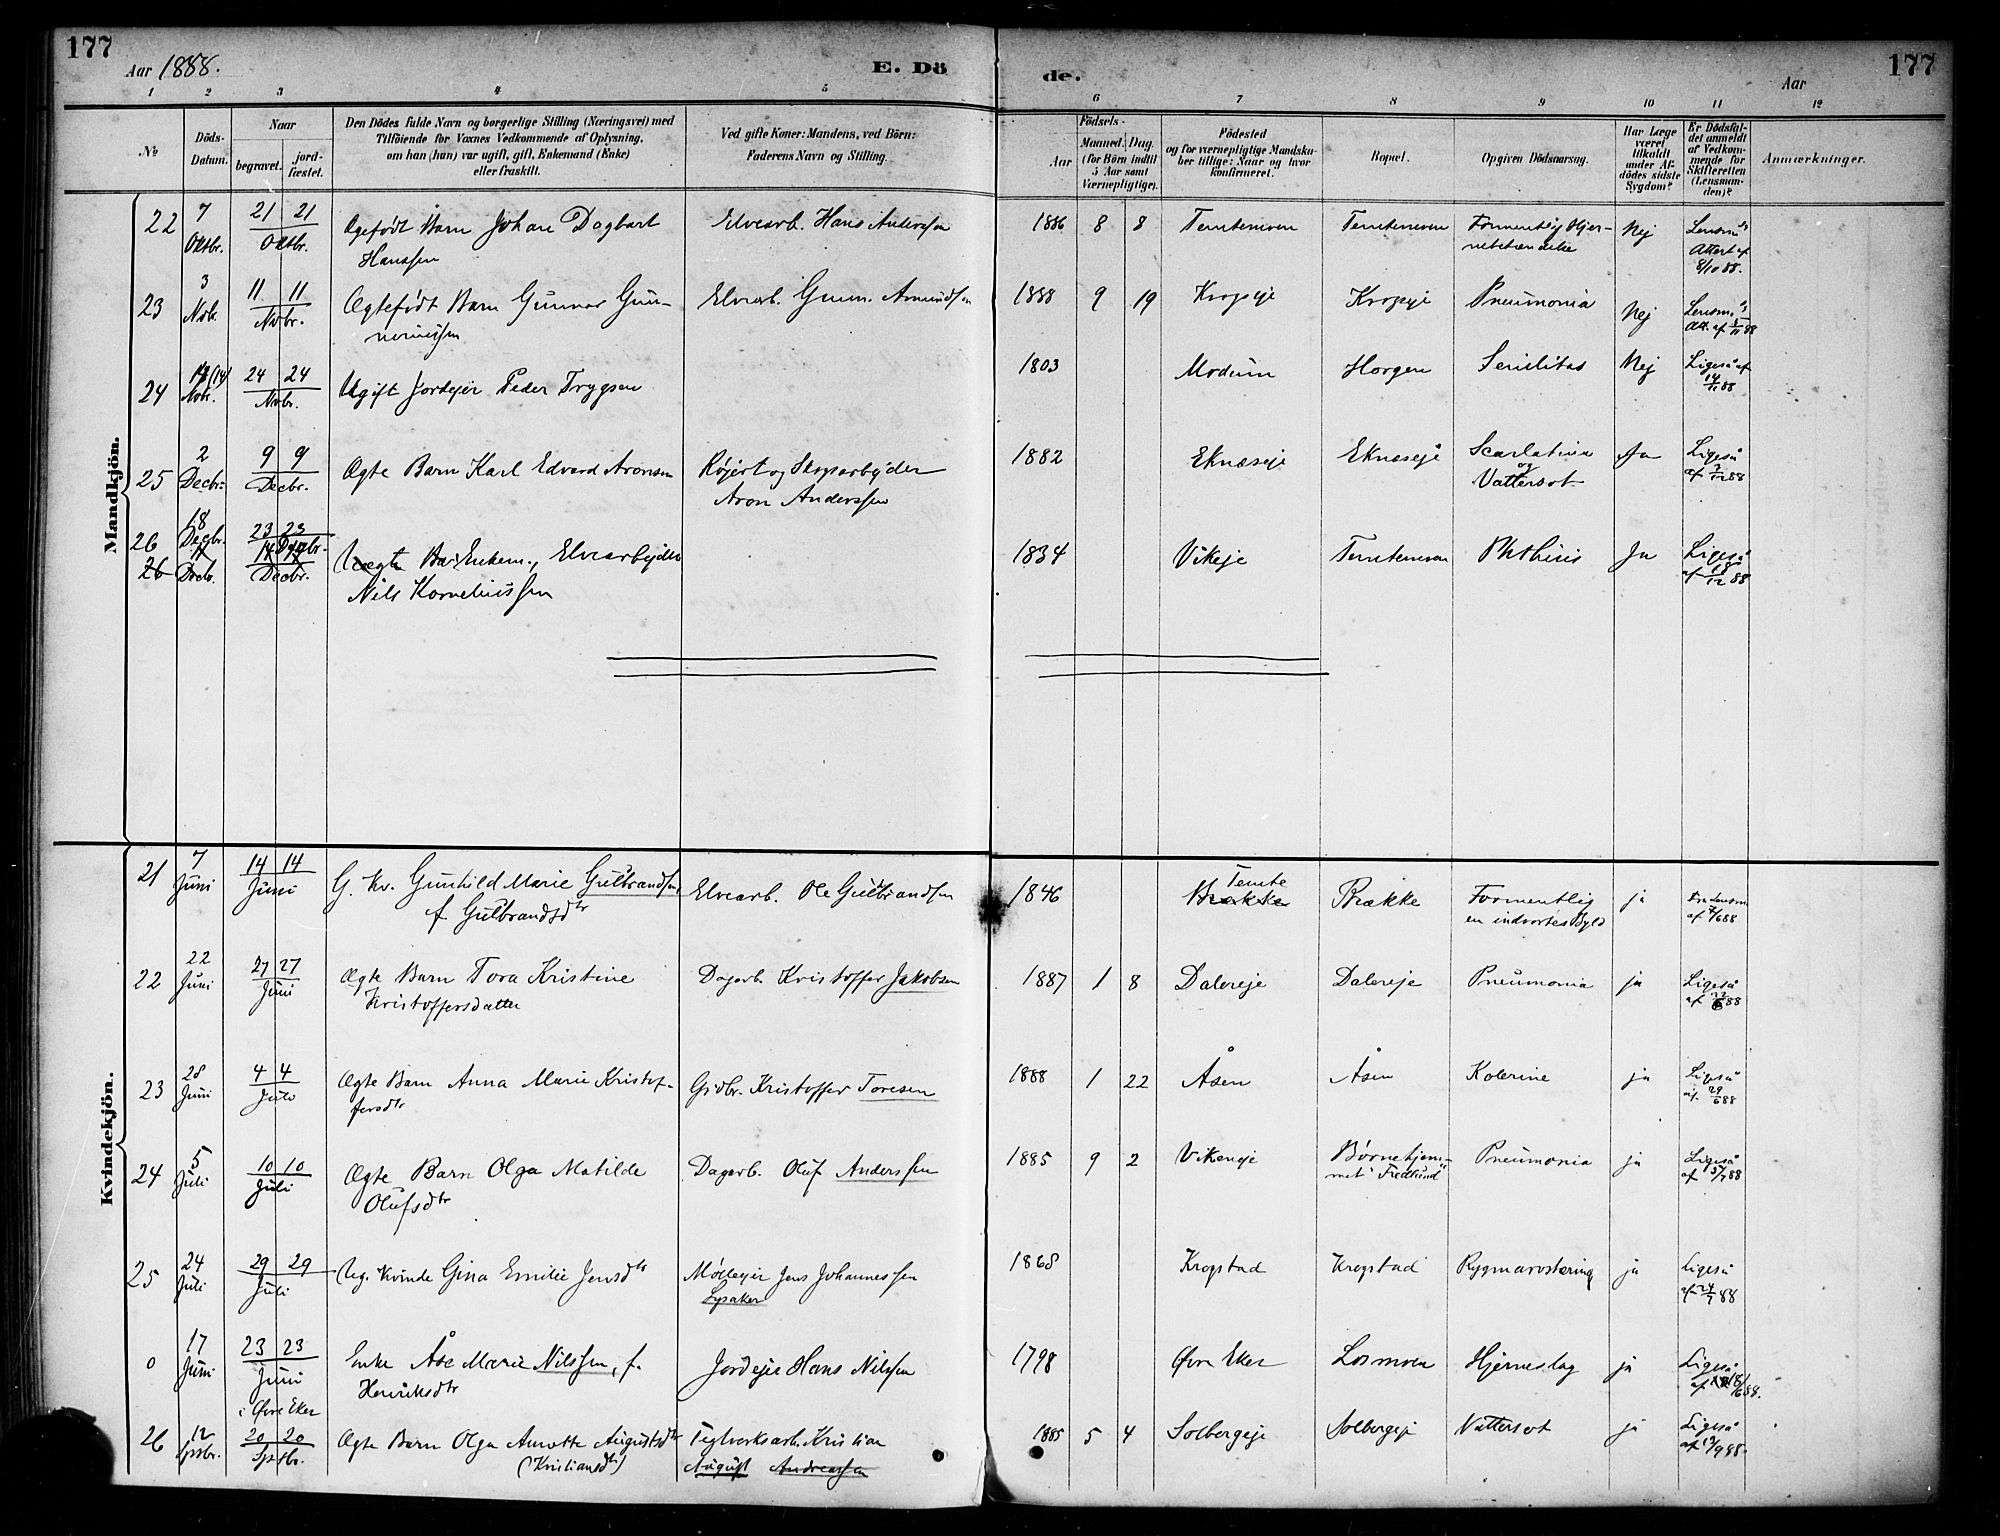 177
Aar 1888.
E. Dö
de.
Aar
177
1 2 3 4 5 6 7 8 9 10 11 12
No
Döds-Datum.
Naar
begravet.
jord-fæstet.
Den Dödes fulde Navn og borgerlige Stilling (Næringsvei) med
Tilföiende for Voxnes Vedkommende af Oplysning,
om han (hun) var ugift, gift, Enkemand (Enke)
eller fraskilt.
Ved gifte Koner: Mandens, ved Börn:
Faderens Navn og Stilling.
Födsels-
Aar
Maaned. Dag.
(for Börn indtil
5 Aar samt
Værnepligtige).
Födested
og for værnepligtige Mandskaber tillige: Naar og hvor
konfirmeret.
Bopæl.
Opgiven Dödsaarsag.
Har Læge
været
tilkaldt
under Afdödes sidste
Sygdom?
Er Dödsfaldet anmeldt
af Vedkommende for
Skifteretten
(Lensmanden)?
Anmærkninger.
Mandkjön.
22 7 Oktbr. 21 21 Oktbr. Ægefödt Barn Johan Dagbart Hanssen Elvearb. Hans Anderssen 1886 8 8 Temtemoen Temtemoen Formentlig Hjernebetændelse Nej Lensm's Attest af 8/10 88.
23 3 Nvbr. 11 11 Nvbr. Ægtefödt Barn Gunnar Gunneriussen Elvearb. Gunn. Amundsen 1888 9 19 Kropseje Kropseje Pneumonia Nej Lensm's Att. af 88
24 (14) Nvbr. 24 24 Nvbr. Ugift Jordejer Peder Trygsen 1803 Modum Horgen Senilitas Nej Ligeså af 14/11 88
25 2 Decbr. 9 9 Decbr. Ægte Barn Karl Edvard Aronsen Röjert og Skoparbejder Aron Anderssen 1882 Eknæseje Eknæseje Scarlatina og Vattersot. Ja Ligeså af 3/12 88
26 18 Decbr. 23 23 Decbr. Enkem., Elvearbejder Nils Korneliussen 1834 Vikeje Temtemoen Phthisis Ja Ligeså af 18/12 88
26 Decbr. 14 Decbr.
Kvindekjön.
21 7 Juni 14 14 Juni G. Kv. Gunhild Marie Gulbrandsen, f. Gulbrandsdtr Elvearb. Ole Gulbrandsen 1846 Brække Temte Brække Formentlig en indvortes Byld ja Fra Lensm. af 7/6 88
22 22 Juni 27 27 Juni Ægte Barn Tora Kristine Kristoffersdatter Dagarb. Kristoffer Jakobsen 1887 1 8 Dalereje Dalereje Pneumonia ja Ligeså af 22/6 88
23 28 Juni 4 4 Juli Ægte Barn Anna Marie Kristoffersdtr Grdbr. Kristoffer Toresen 1888 1 22 Åsen Åsen Kolerine ja Ligeså af 29/6 88
24 5 Juli 10 10 Juli Ægte Barn Olga Matilde Olufsdtr Dagarb. Oluf Anderssen 1885 9 2 Vikeneje Börnehjemmet "Fredlund" Pneumonia ja Ligeså af 5/7 88
25 24 Juli 29 29 Juli Ug. Kvinde Gina Emilie Jensdtr Mölleejer Jens Johannessen Lysaker 1868 Krogstad Krogstad Rygmarvstæring ja Ligeså af 24/7 88
0 17 Juni 23 23 Juni i Övre Eker Enke Åse Marie Nilssen, f. Henriksdtr Jordejer Hans Nilssen 1798 Övre Eker Losmoen Hjerneslag ja Ligeså af 18/6 88.
26 12 Sptbr. 20 20 Sptbr. Ægte Barn Olga Annette Augustsdtr (Kristiansdtr) Teglverksarb. Kristian August Andreassen 1885 5 4 Solbergeje Solbergeje Vattersot ja Ligeså af 12/9 88.